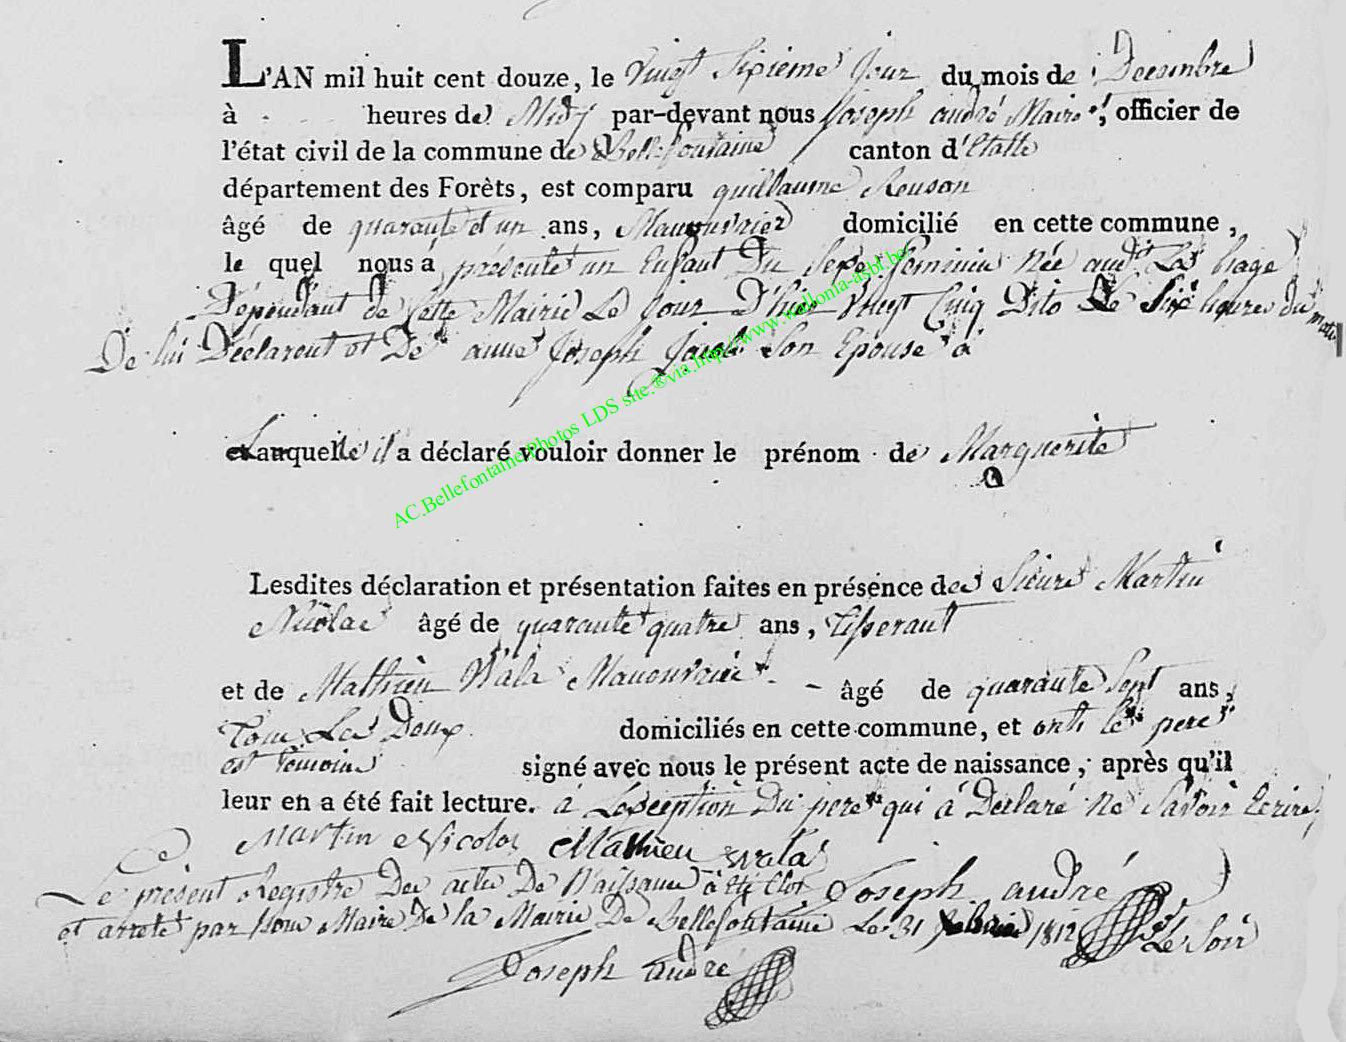 L'AN mil huit cent douze, le Vingt Sixieme Jour du mois de Decembre
à heures de Midy par-devant nous Joseph andré Maire, officier de
l'état civil de la commune de Bellefontaine canton d'Etalle
département des Forèts, est comparu guillaume Renson
âgé de quarante et un ans, Manouvrier domicilié en cette commune,
le quel nous à presenté un Enfant Du Sexe feminin Née au
Dépendant de Cette Mairie Le Jour D'hier Vingt Cinq Dito Le Six heures du matin
De lui Déclarent et De anne Joseph Son Epouse à
Lauquelle il a déclaré vouloir donner le prénom de Marguerite
AC.Bellefontaine Photos LDS site.®via.http://www.wallonia-asbl.be
Lesdites déclaration et présentation faites en présence des Sieurs Martin
Nicolas âgé de quarante quatre ans, tisserant
et de Mathieu Wala Manouvrier âgé de quarante Sept ans,
Tous Les Deux domiciliés en cette commune, et ont le pere
et temoins signé avec nous le présent acte de naissance, après qu'il
leur en a été fait lecture. à L'exception Du pere qui à Déclaré ne Savoir Ecrire,
Martin Nicolas Mathieu wala
Le présent Registre Des actes De Naissance à été Clos Joseph andré
et arreté par Nous Maire De la Mairie De Bellefontaine Le 31 1812 Le Soir
Joseph andré